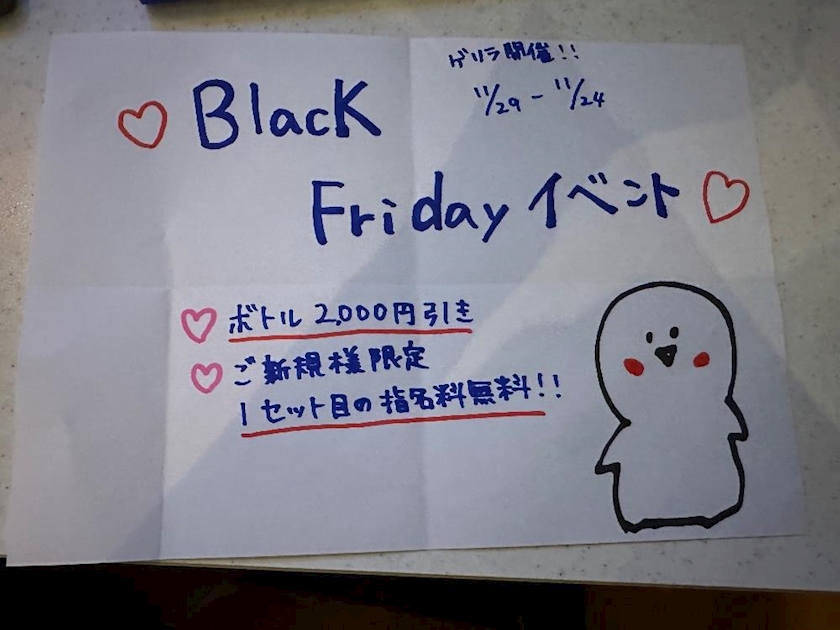 ゲリラ開催!!
11/29 - 11/24
Black
Friday イベント
ボトル 2,000円引き
ご新規様限定
1セット目の指名料無料!!